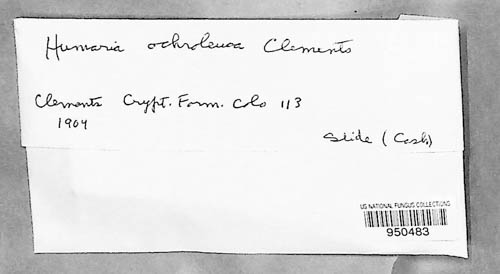 Humaria ochroleuca Clements
Clements Crypt. Form. Colo 113
1904
Slide (Cash)
US NATIONAL FUNGUS COLLECTIONS
950483